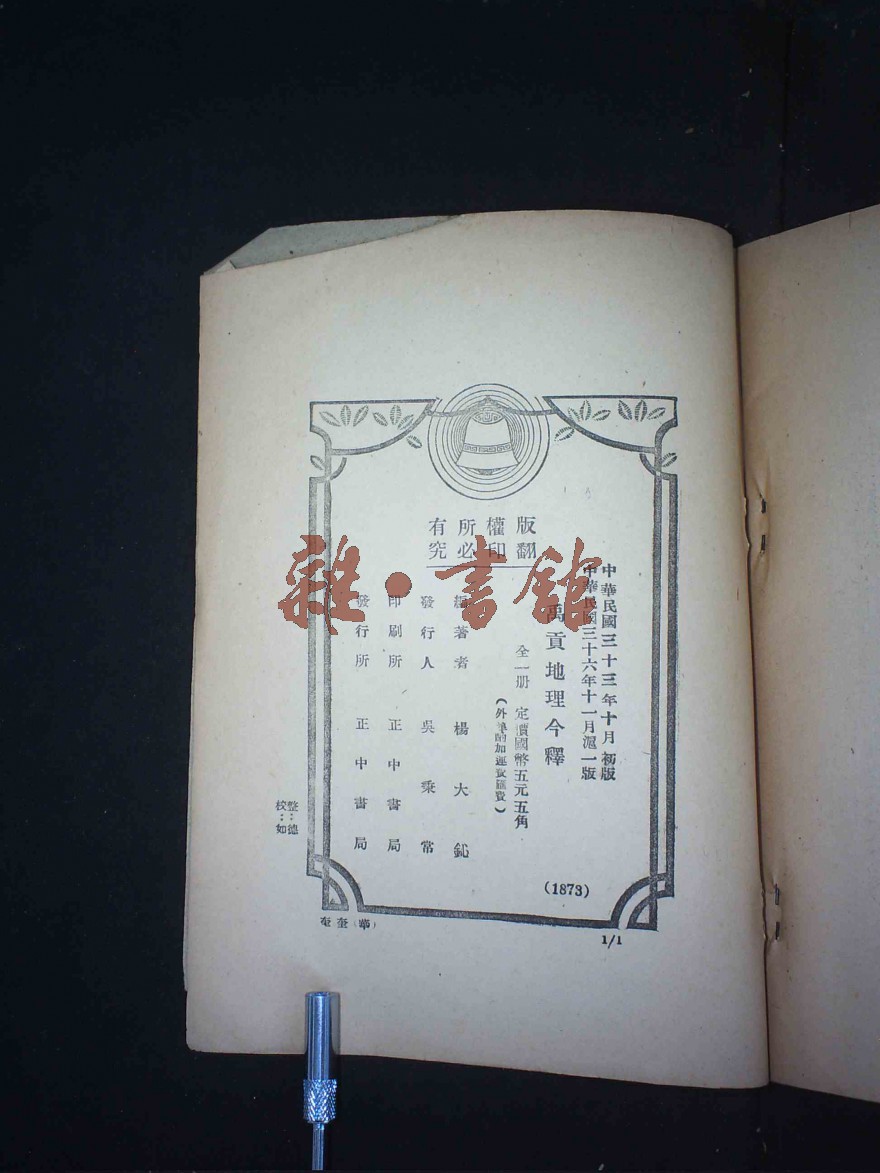 版權所有
翻印必究
中華民國三十三年十月初版
中華民國三十六年十一月滬一版
禹貢地理今釋
全一册 定價國幣五元五角
(外埠酌加運費匯費)
編著者 楊大鈊
發行人 吳秉常
印刷所 正中書局
發行所 正中書局
(1873)
整:德
校:如
1/1
雜·書館